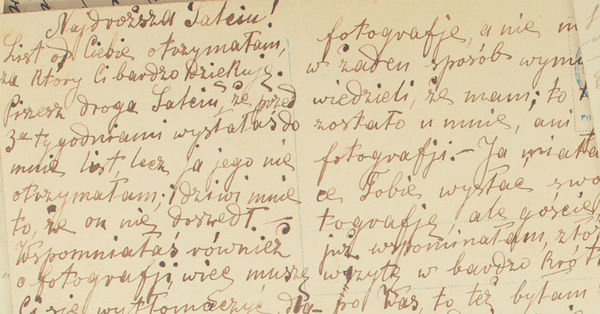 Najdroższa Salciu!
List od Ciebie otrzymałam,
za który Ci bardzo dziękuję.
Piszesz droga Salciu, że przed
3ᵃ tygodniami wysłałaś do
mnie list, lecz ja jego nie
otrzymałam; i dziwi mnie
to, że on nie doszedł. –
Wspomniałaś również
o fotografji, więc muszę
Ci się wytłomaczyć, dla-
fotografje, a nie
w żaden sposób
wiedzieli, że mam; to
zostało u mnie, ani
fotografji. – Ja miała
Tobie wysłać swo
tografję, ale goście,
już wspominałam,
wizytę w bardzo krót
po Was, to też byłam